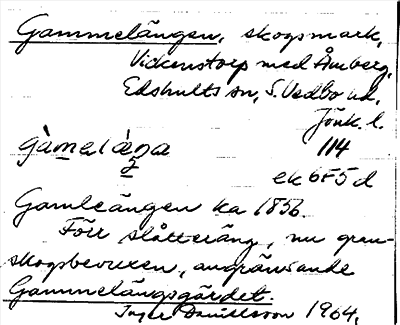 Gammelängen, skogsmark,
Vickenstorp med Åmberg,
Edshults sn, S. Vedbo hd,
Jönk. l.
114
ek 6F5d
Gamleängen ka 1856.
Förr slåtteräng, nu gran-
skogsbevuxen, angränsande
Gammelängsgärdet.
Inger Danielsson 1964.